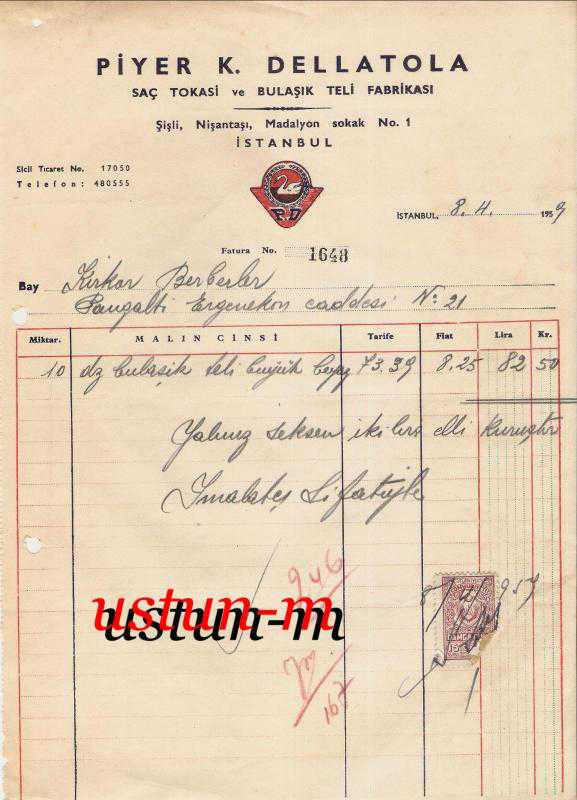 PİYER K. DELLATOLA
SAÇ TOKASİ ve BULAŞIK TELİ FABRİKASI
Şişli, Nişantaşı, Madalyon sokak No. 1
İSTANBUL
Sicil Ticaret No. 17050
Telefon: 480555
P.D
İSTANBUL, 8.4. 1959
Fatura No. 1648
Bay Kirkor Berberler
Pangaltı Ergenekon caddesi No: 21
Miktar. MALIN CİNSİ Tarife Fiat Lira Kr.
10 dz bulaşik teli büyük beyaz 73.39 8.25 82 50
Yalınız seksen iki lira elli kuruştur
İmalatçı Sifatiyle
946
167
ustun-m
ustun-m